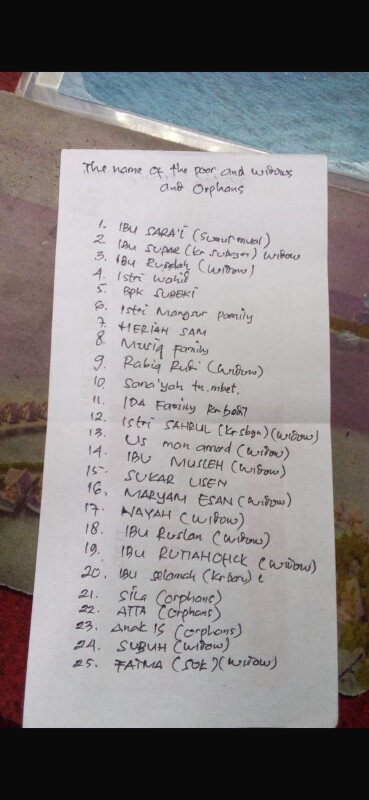 The name of the poor, and widows
and Orphans
1. IBU SARA'I (Sumur mual)
2. Ibu SUPAR (Kr subagn) widow
3. Ibu Rusdah (widow)
4. Istri Wahid
5. BPK SUBEKI
6. Istri Mansur family
7. HERIAH SAM
8. Musiq Family
9. Rabiq Rudi (widow)
10. Sana'yah tn. mbet.
11. IDA Family Kr bedil
12. Istri SAHRUL (Kr sbgn) (widow)
13. Us man amad (widow)
14. IBU MUSLEH (widow)
15. SUKAR USEN
16. MARYAM ESAN (widow)
17. NAYAH (widow)
18. IBU Ruslan (widow)
19. IBU (widow)
20. Ibu Selamah (Kr baru)
21. Sila (orphans)
22. ATTA (orphans)
23. Anak IS (orphans)
24. SUBUH (widow)
25. FATMA (SOK) (widow)